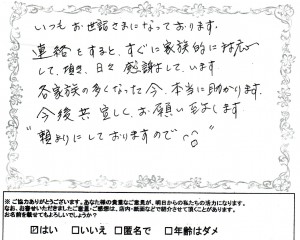 いつもお世話さまになっております。
連絡をすると、すぐに家族的に対応
して、頂き、日々感謝しています
各家族の多くなった今、本当に助かります。
今後共宜しくお願い致します
"頼りにしておりますので
※ご協力ありがとうございます。あなた様の貴重なご意見が、明日からの私たちの活力になります。
なお、お寄せいただきましたご意見・ご感想は、店内・紙面などで紹介させて頂くことがあります。
お名前を載せてもよろしいでしょうか？
☑はい □いいえ □匿名で □年齢はダメ